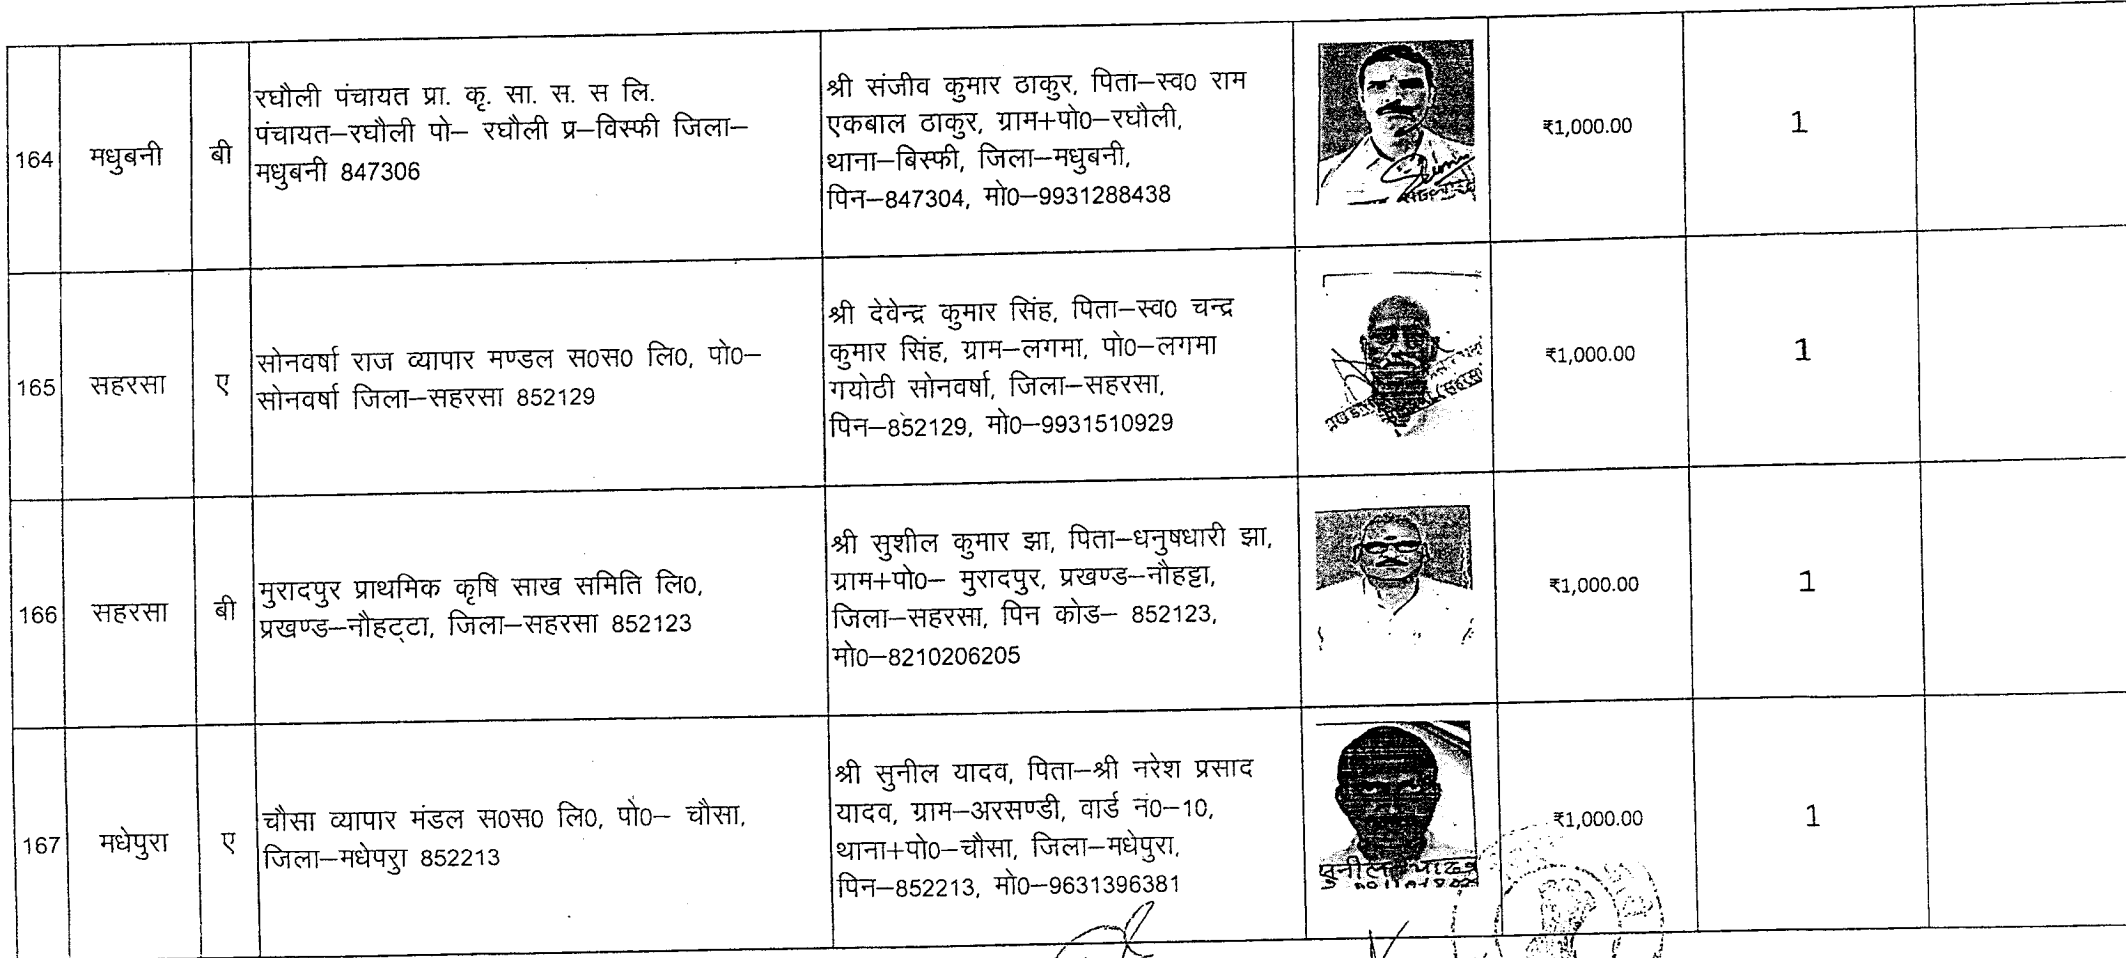 164
मधुबनी
बी
रघौली पंचायत प्रा. कृ. सा. स. स लि.
पंचायत–रघौली पो– रघौली प्र–विस्फी जिला–
मधुबनी 847306
श्री संजीव कुमार ठाकुर, पिता–स्व0 राम
एकबाल ठाकुर, ग्राम+पो0–रघौली,
थाना–बिस्फी, जिला–मधुबनी,
पिन–847304, मो0–9931288438
₹1,000.00
1
165
सहरसा
ए
सोनवर्षा राज व्यापार मण्डल स0स0 लि0, पो0–
सोनवर्षा जिला–सहरसा 852129
श्री देवेन्द्र कुमार सिंह, पिता–स्व0 चन्द्र
कुमार सिंह, ग्राम–लगमा, पो0–लगमा
गयोठी सोनवर्षा, जिला–सहरसा,
पिन–852129, मो0–9931510929
₹1,000.00
1
166
सहरसा
बी
मुरादपुर प्राथमिक कृषि साख समिति लि0,
प्रखण्ड–नौहट्‌टा, जिला–सहरसा 852123
श्री सुशील कुमार झा, पिता–धनुषधारी झा,
ग्राम+पो0– मुरादपुर, प्रखण्ड–नौहट्टा,
जिला–सहरसा, पिन कोड– 852123,
मो0–8210206205
₹1,000.00
1
167
मधेपुरा
ए
चौसा व्यापार मंडल स0स0 लि0, पो0– चौसा,
जिला–मधेपरुा 852213
श्री सुनील यादव, पिता–श्री नरेश प्रसाद
यादव, ग्राम–अरसण्डी, वार्ड नं0–10,
थाना+पो0–चौसा, जिला–मधेपुरा,
पिन–852213, मो0–9631396381
सुनील यादव
₹1,000.00
1